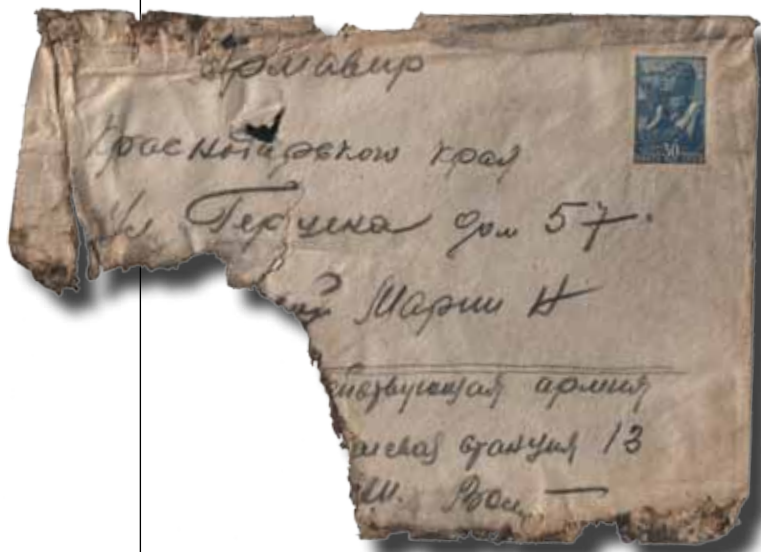 Армавир
Краснодарского края
Ул Герцена дом 57.
Марии Н
действующая армия
станция 13
30